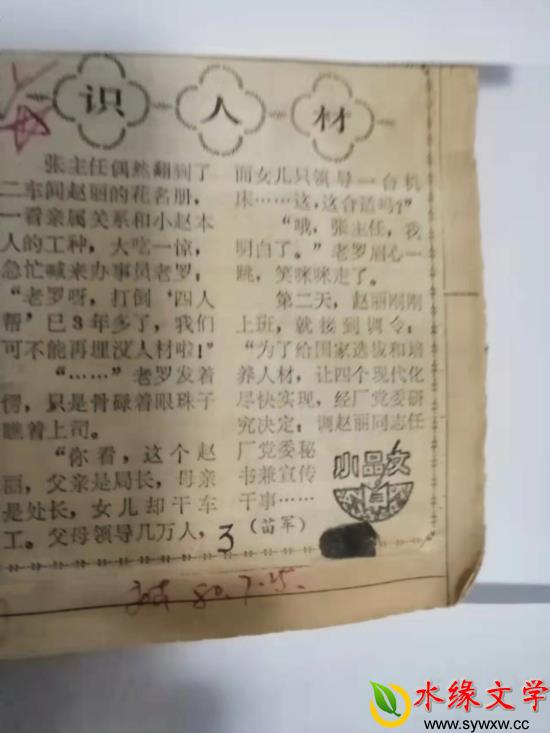 识人材
张主任偶然翻到了
二车间赵丽的花名册，
一看亲属关系和小赵本
人的工种，大吃一惊，
急忙喊来办事员老罗：
“老罗呀，打倒‘四人
帮’已3年多了，我们
可不能再埋没人材啦！”
“……”老罗发着
愣，只是骨碌着眼珠子
瞧着上司。
“你看，这个赵
丽，父亲是局长，母亲
是处长，女儿却干车
工。父母领导几万人，
而女儿只领导一台机
床……这，这合适吗？”
“哦，张主任，我
明白了。”老罗眉心一
跳，笑咪咪走了。
第二天，赵丽刚刚
上班，就接到调令：
“为了给国家选拔和培
养人材，让四个现代化
尽快实现，经厂党委研
究决定：调赵丽同志任
厂党委秘
书兼宣传
干事……
3
（苗军）
小品文
80.7.15.
水缘文学
www.sywxw.cc